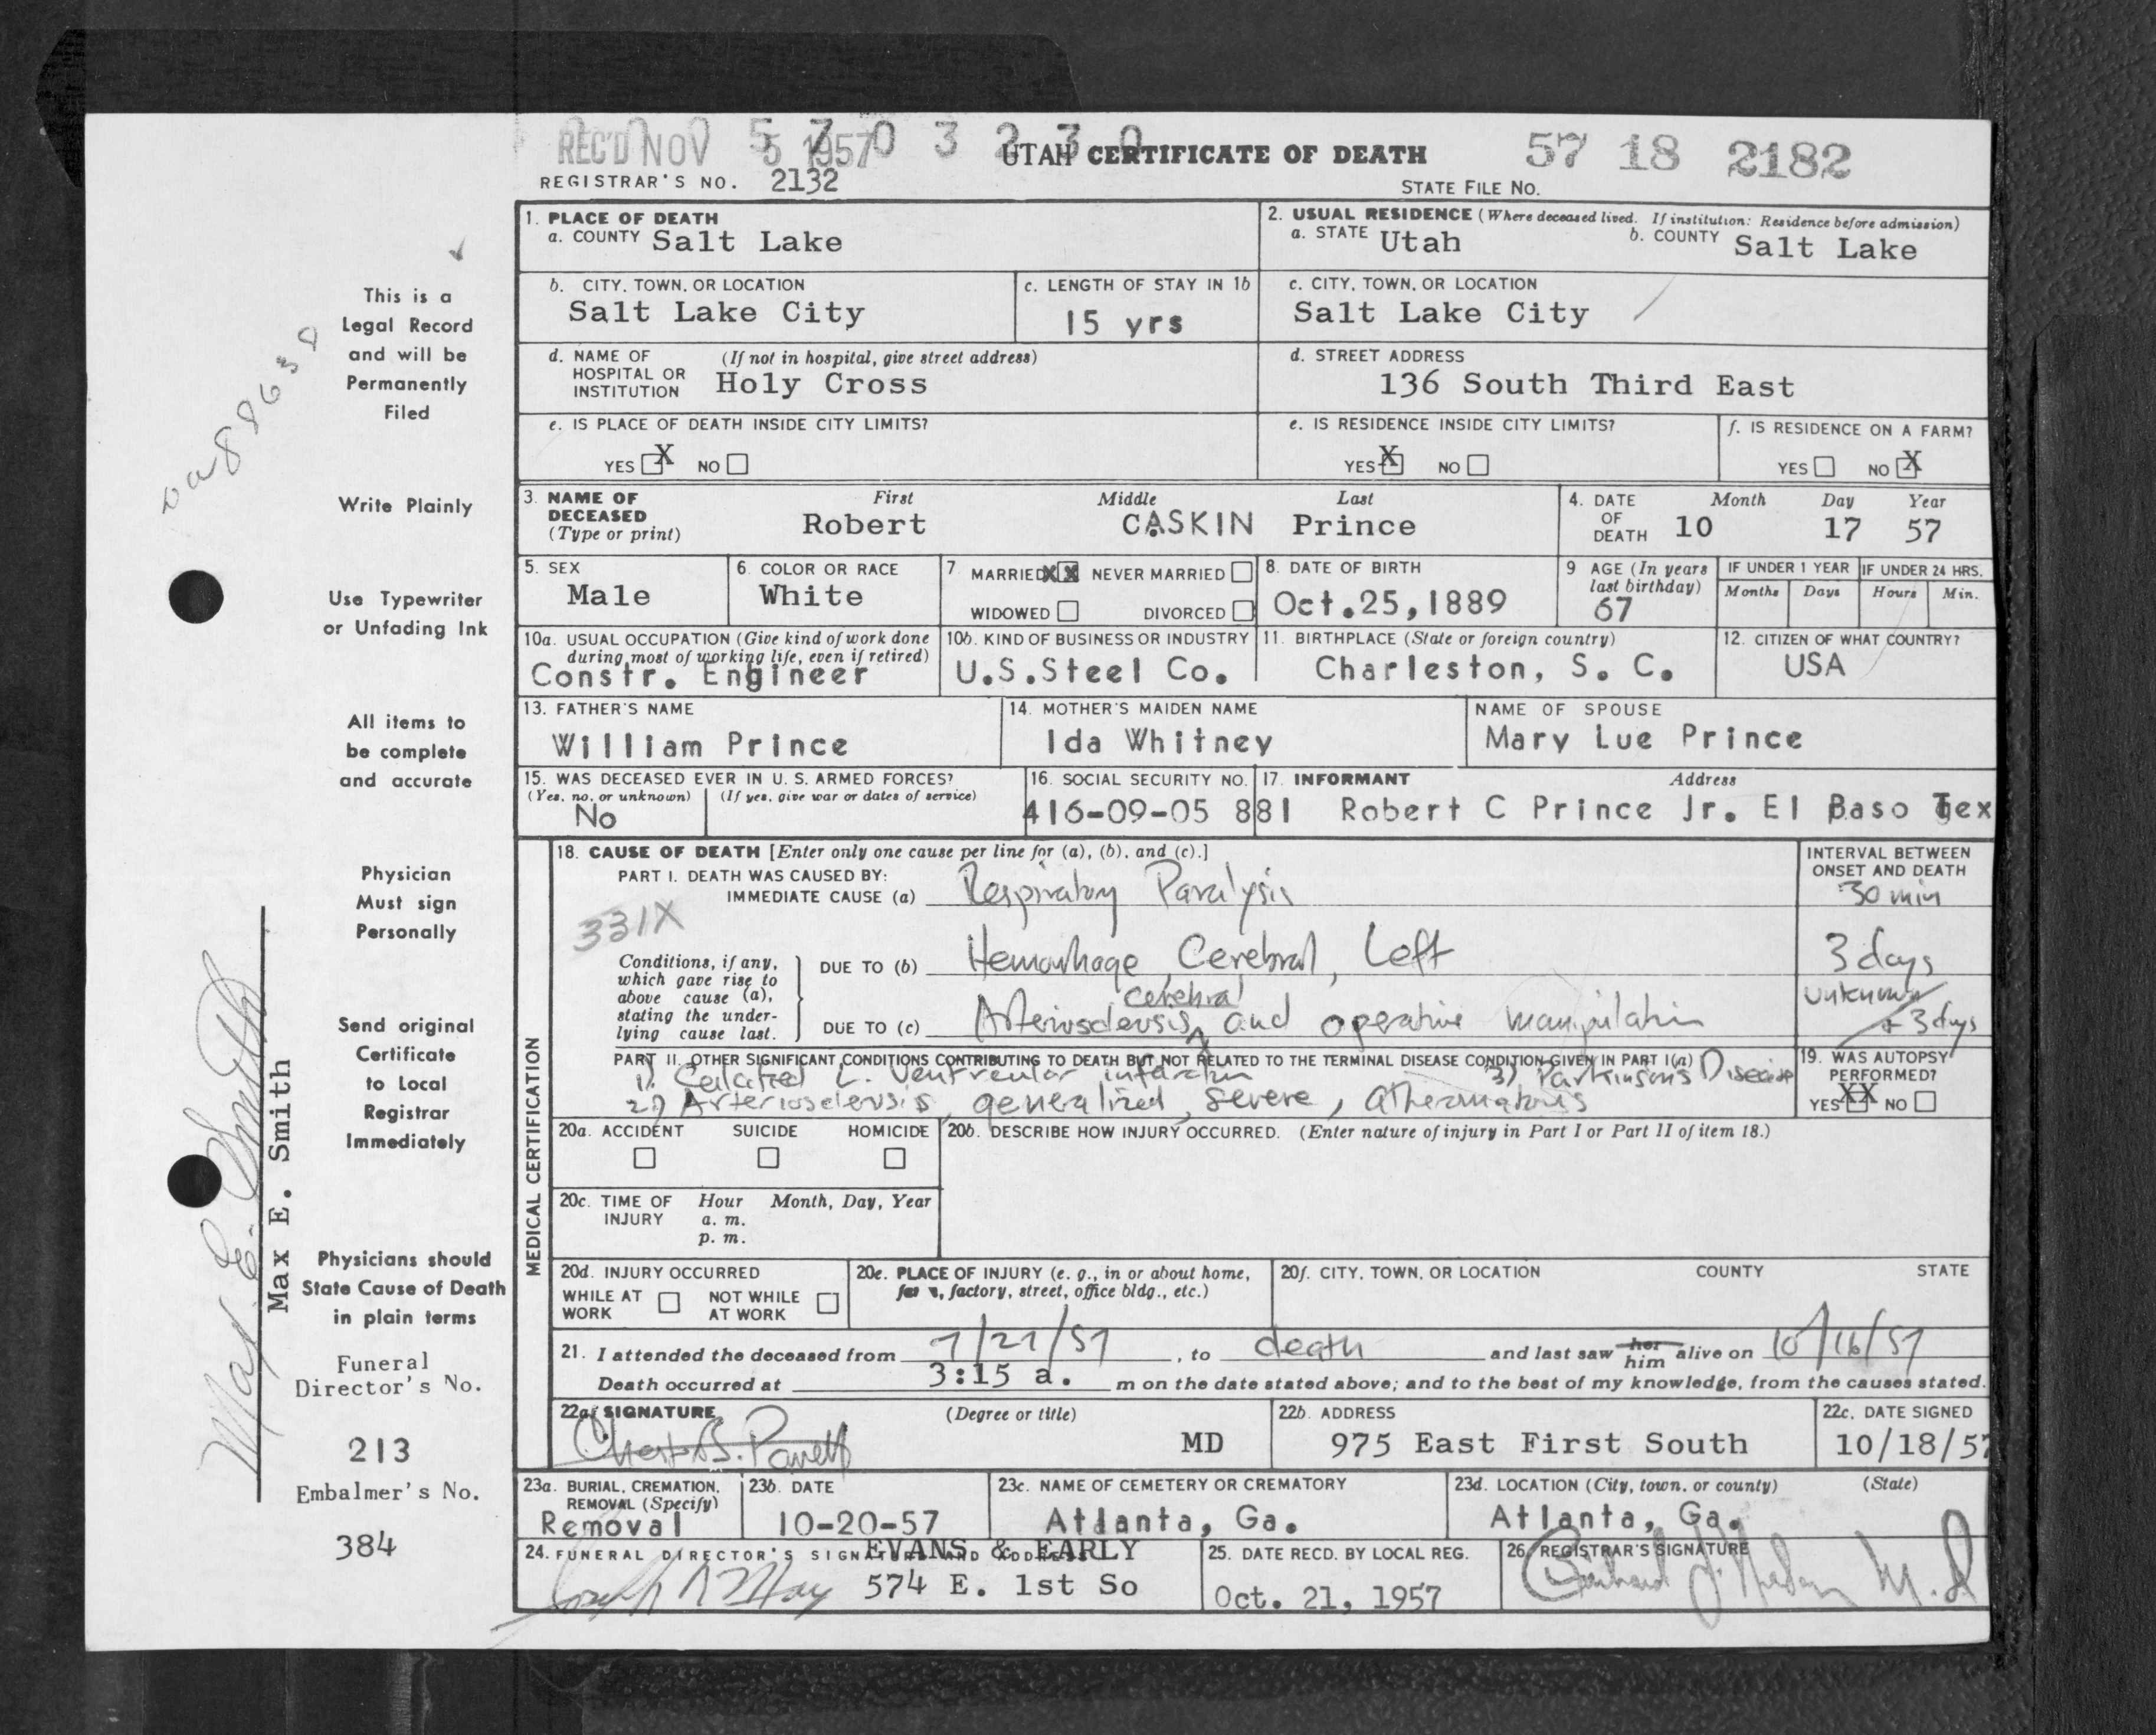 REC'D NOV 5 1957
5 7 0 3 2 3 0
UTAH CERTIFICATE OF DEATH
57 18 2182
REGISTRAR'S NO. 2132
STATE FILE NO.
1. PLACE OF DEATH
a. COUNTY Salt Lake
2. USUAL RESIDENCE (Where deceased lived. If institution: Residence before admission)
a. STATE Utah b. COUNTY Salt Lake
b. CITY, TOWN, OR LOCATION
Salt Lake City
c. LENGTH OF STAY IN 1b
15 yrs
c. CITY, TOWN, OR LOCATION
Salt Lake City
d. NAME OF HOSPITAL OR INSTITUTION (If not in hospital, give street address)
Holy Cross
d. STREET ADDRESS
136 South Third East
e. IS PLACE OF DEATH INSIDE CITY LIMITS?
YES X NO
e. IS RESIDENCE INSIDE CITY LIMITS?
YES X NO
f. IS RESIDENCE ON A FARM?
YES NO X
3. NAME OF DECEASED (Type or print)
First Middle Last
Robert CASKIN Prince
4. DATE OF DEATH Month Day Year
10 17 57
5. SEX
Male
6. COLOR OR RACE
White
7 MARRIED XX NEVER MARRIED
WIDOWED DIVORCED
8. DATE OF BIRTH
Oct.25,1889
9 AGE (In years last birthday)
67
IF UNDER 1 YEAR IF UNDER 24 HRS.
Months Days Hours Min.
10a. USUAL OCCUPATION (Give kind of work done during most of working life, even if retired)
Constr. Engineer
10b. KIND OF BUSINESS OR INDUSTRY
U.S.Steel Co.
11. BIRTHPLACE (State or foreign country)
Charleston, S. C.
12. CITIZEN OF WHAT COUNTRY?
USA
13. FATHER'S NAME
William Prince
14. MOTHER'S MAIDEN NAME
Ida Whitney
NAME OF SPOUSE
Mary Lue Prince
15. WAS DECEASED EVER IN U. S. ARMED FORCES?
(Yes, no, or unknown) (If yes, give war or dates of service)
No
16. SOCIAL SECURITY NO.
416-09-05 881
17. INFORMANT Address
Robert C Prince Jr. El Baso Tex
18. CAUSE OF DEATH [Enter only one cause per line for (a), (b), and (c).]
PART I. DEATH WAS CAUSED BY:
IMMEDIATE CAUSE (a) Respiratory Paralysis
INTERVAL BETWEEN ONSET AND DEATH
30 min
331X
Conditions, if any, which gave rise to above cause (a), stating the underlying cause last.
DUE TO (b) Hemorrhage, Cerebral, Left
3 days
cerebral
DUE TO (c) Arteriosclerosis, and operative manipulation
unknown
+ 3 days
PART II. OTHER SIGNIFICANT CONDITIONS CONTRIBUTING TO DEATH BUT NOT RELATED TO THE TERMINAL DISEASE CONDITION GIVEN IN PART I(a)
1) L. Ventricular infarction 3) Parkinson's Disease
2) Arteriosclerosis, generalized, severe, atheromatous
19. WAS AUTOPSY PERFORMED?
YES XX NO
MEDICAL CERTIFICATION
20a. ACCIDENT SUICIDE HOMICIDE
20b. DESCRIBE HOW INJURY OCCURRED. (Enter nature of injury in Part I or Part II of item 18.)
20c. TIME OF INJURY Hour Month, Day, Year
a. m.
p. m.
20d. INJURY OCCURRED
WHILE AT WORK NOT WHILE AT WORK
20e. PLACE OF INJURY (e. g., in or about home, farm, factory, street, office bldg., etc.)
20f. CITY, TOWN, OR LOCATION COUNTY STATE
21. I attended the deceased from 7/27/57, to death and last saw her him alive on 10/16/57
Death occurred at 3:15 a. m on the date stated above; and to the best of my knowledge, from the causes stated.
22a. SIGNATURE (Degree or title)
MD
22b. ADDRESS
975 East First South
22c. DATE SIGNED
10/18/57
23a. BURIAL, CREMATION, REMOVAL (Specify)
Removal
23b. DATE
10-20-57
23c. NAME OF CEMETERY OR CREMATORY
Atlanta, Ga.
23d. LOCATION (City, town, or county) (State)
Atlanta, Ga.
24. FUNERAL DIRECTOR'S SIGNATURE AND ADDRESS
EVANS & EARLY
574 E. 1st So
25. DATE RECD. BY LOCAL REG.
Oct. 21, 1957
26. REGISTRAR'S SIGNATURE
This is a
Legal Record
and will be
Permanently
Filed
Write Plainly
Use Typewriter
or Unfading Ink
All items to
be complete
and accurate
Physician
Must sign
Personally
Send original
Certificate
to Local
Registrar
Immediately
Physicians should
State Cause of Death
in plain terms
Funeral
Director's No.
213
Embalmer's No.
384
Max E. Smith
Max E. Smith